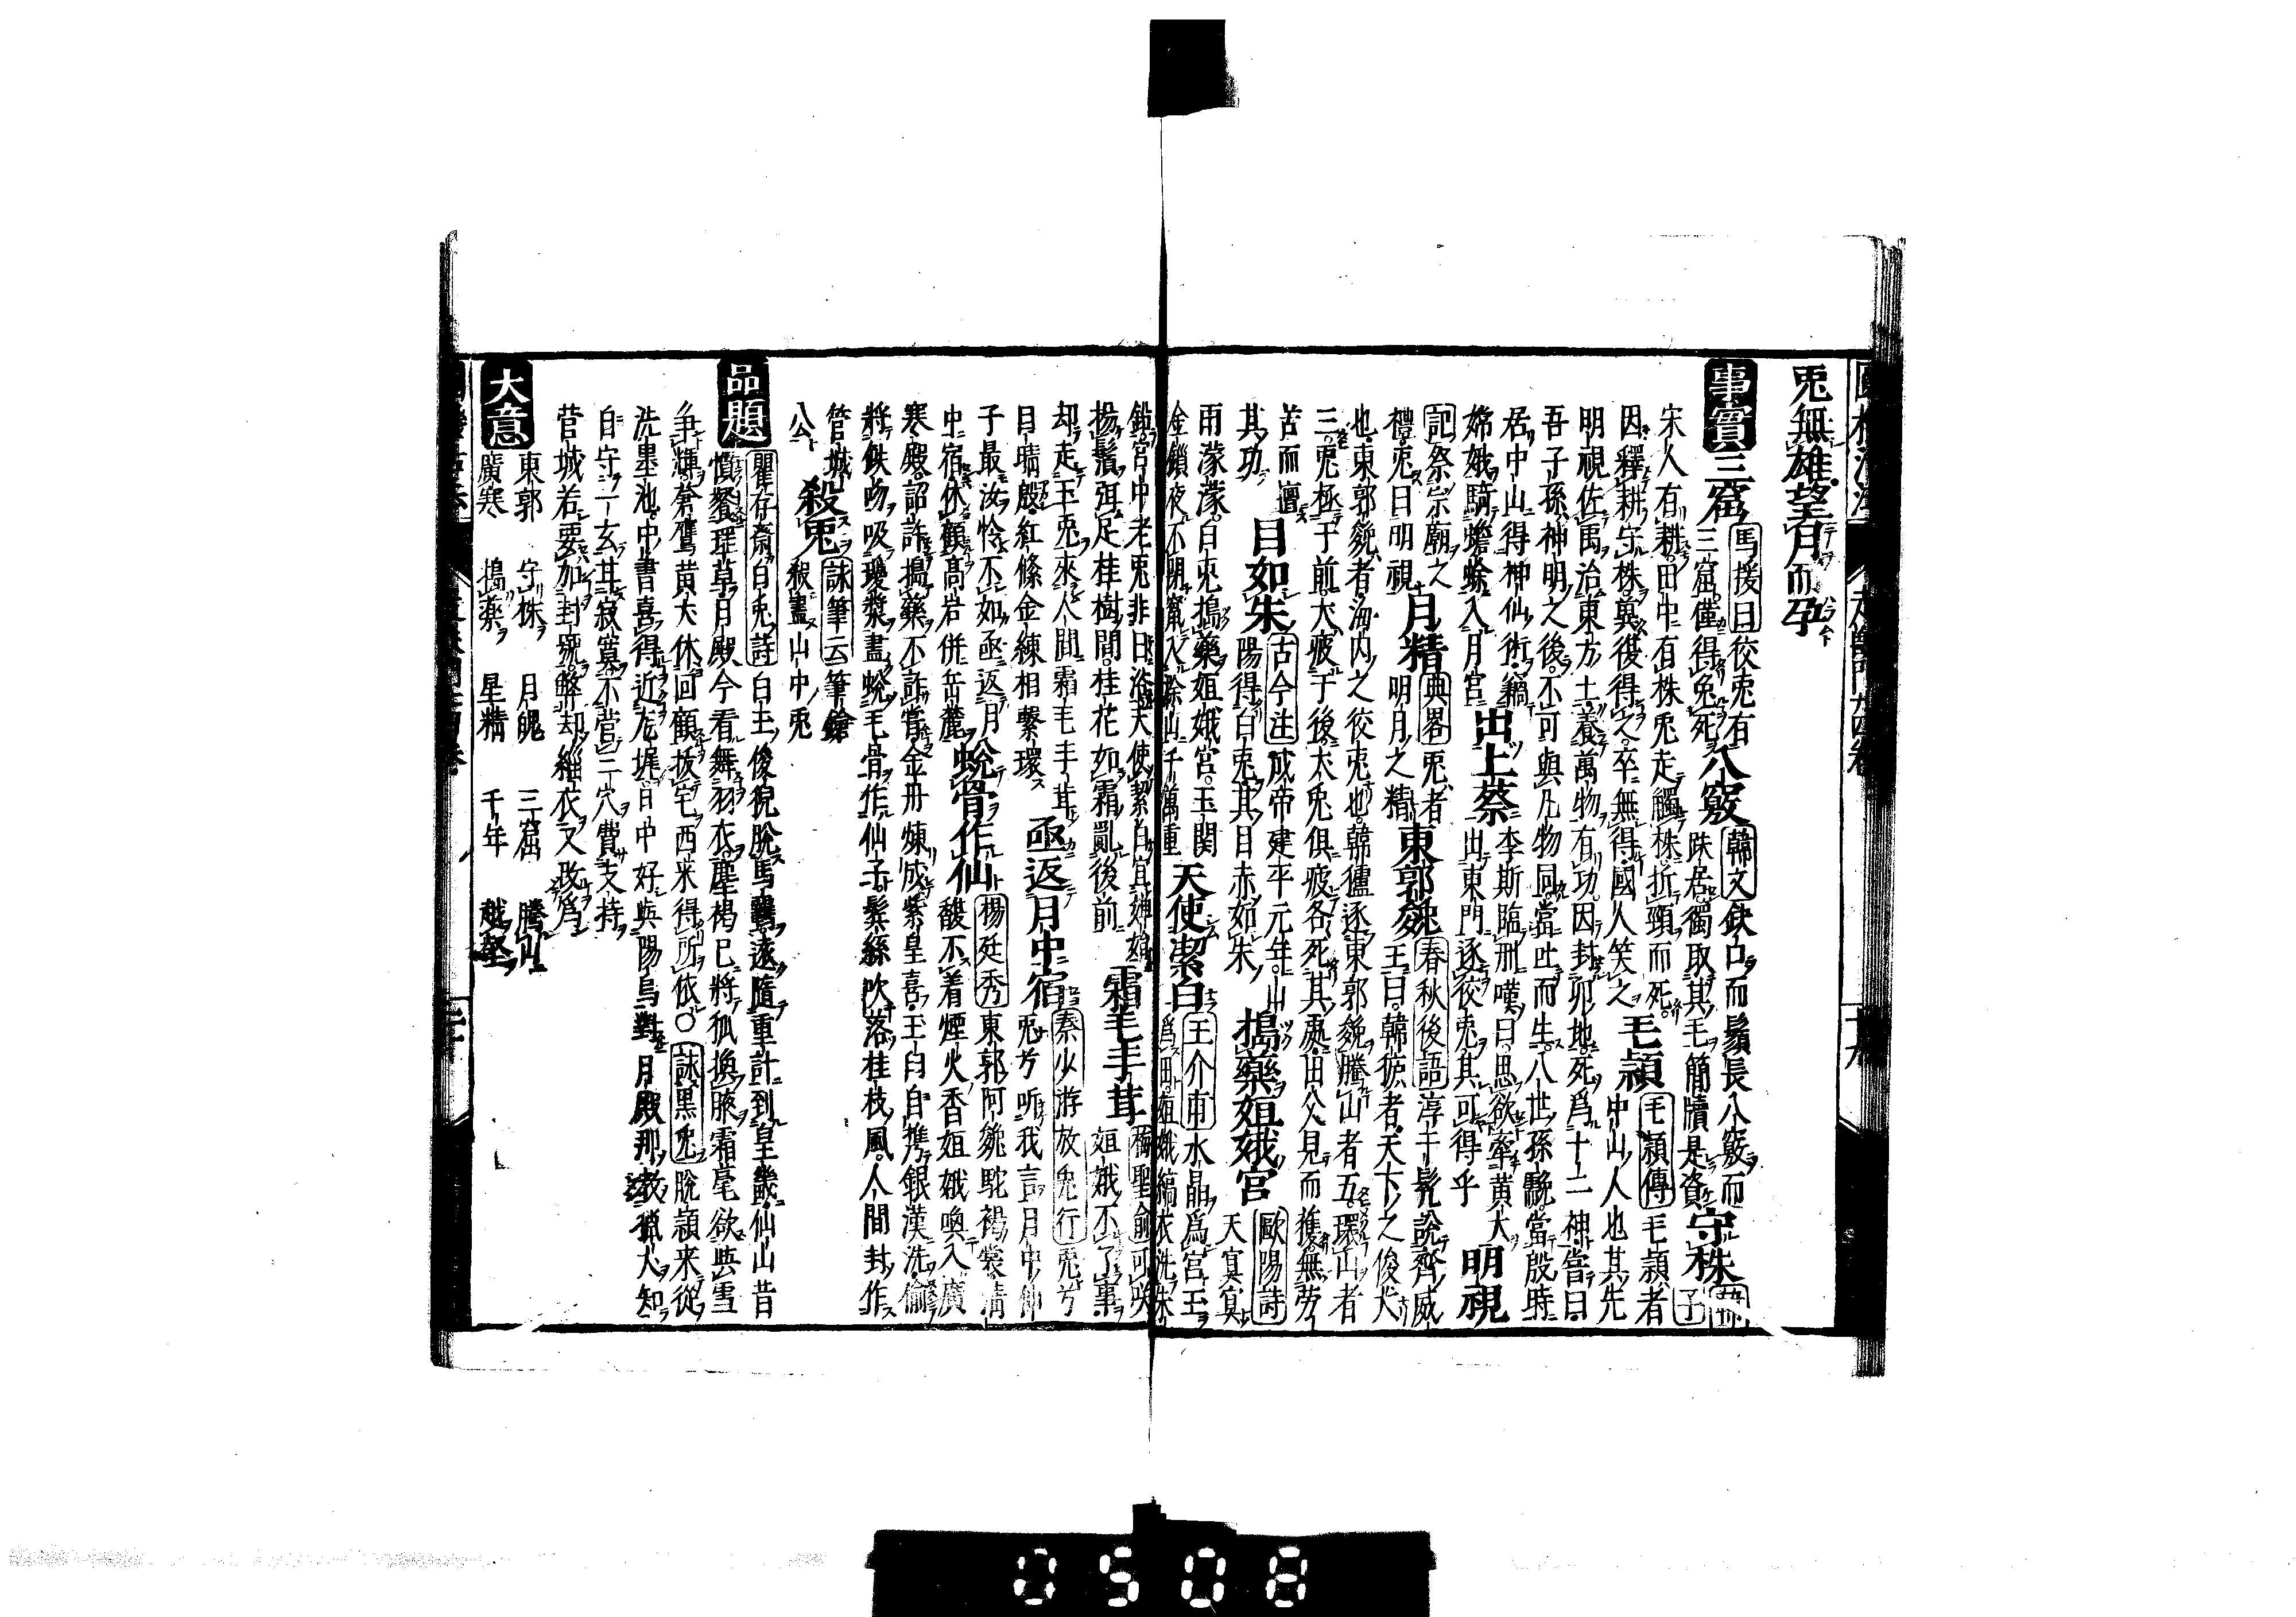 兎無雄望月而孕
事實 三窟 馬援曰 狡兎有
三窟僅得兔死 八竅 韓文 缺口而鬚長八竅而
趺居獨取其毛簡牘是資 守株 子
宋人有耕田中有株兎走觸株折頸而死
因釋耕守株冀復得之卒無得國人笑之 毛頴 毛頴傳 毛頴者
中山人也其先
明視佐禹治東方土養萬物有功因封卯地死爲十二神嘗曰
吾子孫神明之後不可與凡物同當吐而生八世孫䨲當殷時
居中山得神仙術竊
嫦娥騎蟾蜍入月宮 出上蔡 李斯臨刑嘆曰思欲牽黄犬
出東門逐狡兎其可得乎 明視
記 祭宗廟之
禮兎曰明視 月精 典畧 兎者
明月之精 東郭㕙 春秋後語 淳于髡説齊威
王曰韓㹱者天下之俊犬
也東郭㕙者海内之狡兎也韓盧逐東郭㕙騰山者五環山者
三兎極于前犬疲于後犬兎俱疲各死其處田父見而獲無勞
苦而擅
其功 目如朱 古今注 成帝建平元年山
陽得白兎其目赤如朱 搗藥姮娥宮 歐陽詩
天寞寞
雨濛濛白兎搗藥姮娥宮玉関
金鎖夜不閉竄入滁山千萬重 天使潔白 王介甫 水晶爲宮玉
爲田姮娥縞衣洗朱
鉛宮中老兎非日浴天使潔白宜嬋娟
揚鬚弭足桂樹間桂花如霜亂後前 霜毛手茸 梅聖俞 可咲
姮娥不了事
却走玉兎來人間霜毛手茸
目睛殷紅絛金練相繫環 亟返月中宿 秦少游放兎行 兎兮
兎兮听我言月中仙
子最汝怜不如亟返月
中宿休顧高岩併岳麓 蛻骨作仙 楊廷秀 東郭阿㕙駝褐裳清
酸不着煙火香姮娥喚入廣
寒殿詔許搗藥不許嘗金丹煉成紫皇喜王臼自携銀漢洗偷
將鉄吻吸瓊漿盡蛻毛骨作仙子鬃絲吹落桂枝風人間封作
管城
公 殺兎 詠筆云 筆鎗
殺盡山中兎
品題 瞿存斎白兎詩 白主俊猊脫馬逐隨重計到皇畿仙山昔
慣餐瑶草月殿今看舞羽衣塵褐已將狐換腋霜毫欲與雪
爭輝蒼鷹黄犬休回顧扳宅西来得所依〇 詠黒兎 脫頴来從
洗墨池中書喜得近尨墀日中好與陽烏對月殿那教猟犬知
自守一玄甘寂寞不営三穴費支持
菅城若要加封號弊却緇衣又改爲
大意 東郭 守株 月魄 三窟 騰山
廣寒 搗藥 星精 千年 越壑